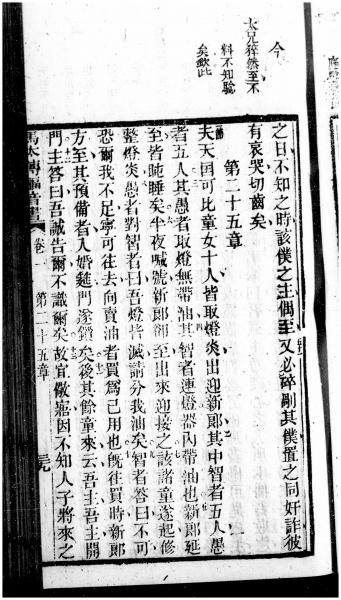 今
太兄猝然至不
料不知駿
矣欽此
之日不知之時該僕之主偶至又必碎剮其僕置之同奸詐彼
有哀哭切齒矣
第二十五章
夫天国可比童女十人皆取燈㷋出迎新郎其中智者五人愚
者五人其愚者取燈無帶油其智者連燈器內帶油也新郎延
至皆盹睡矣半夜喊號新郎至出來迎接之該諸童遂起修
整燈㷋愚者對智者曰吾燈皆滅請分我油矣智者答曰不可
恐爾我不足寧可往去向賣油者買為己用也旣往買時新郎
方至其預備者入婚筵門遂鎖矣後其餘童來云吾主吾主開
門主答曰吾誠告爾不識爾矣故宜儆寤因不知人子將來之
馬太傳福音書 卷一 第二十五章